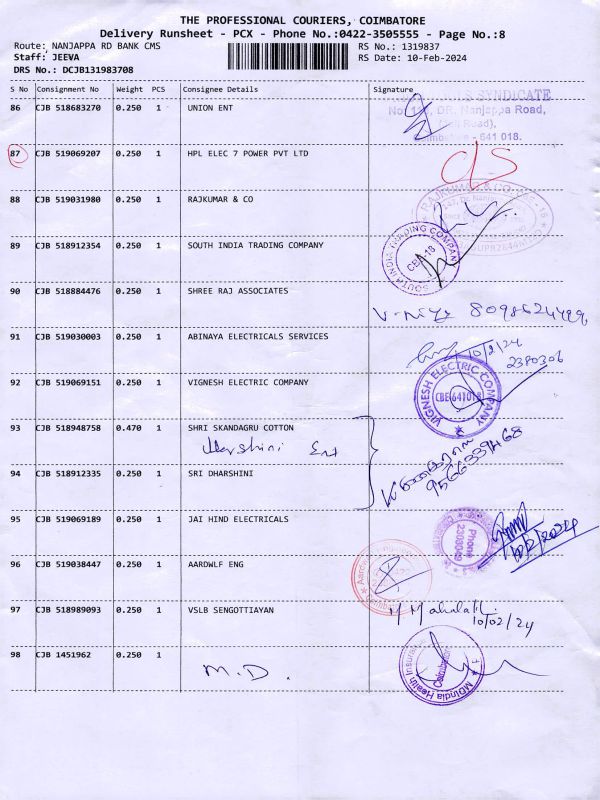 THE PROFESSIONAL COURIERS, COIMBATORE
Delivery Runsheet - PCX - Phone No.:0422-3505555 - Page No.:8
Route: NANJAPPA RD BANK CMS
RS No.: 1319837
Staff: JEEVA
RS Date: 10-Feb-2024
DRS No.: DCJB131983708
S No Consignment No Weight PCS Consignee Details Signature
86 CJB 518683270 0.250 1 UNION ENT
SYNDICATE
DR. Nanjappa Road,
- 641 018.
87 CJB 519069207 0.250 1 HPL ELEC 7 POWER PVT LTD
88 CJB 519031980 0.250 1 RAJKUMAR & CO
RAJKUMAR & CO
89 CJB 518912354 0.250 1 SOUTH INDIA TRADING COMPANY
SOUTH INDIA TRADING COMPANY
90 CJB 518884476 0.250 1 SHREE RAJ ASSOCIATES
91 CJB 519030003 0.250 1 ABINAYA ELECTRICALS SERVICES
10/2/24
2380306
92 CJB 519069151 0.250 1 VIGNESH ELECTRIC COMPANY
VIGNESH ELECTRIC COMPANY
CBE 641018
93 CJB 518948758 0.470 1 SHRI SKANDAGRU COTTON
Ent
9566339468
94 CJB 518912335 0.250 1 SRI DHARSHINI
95 CJB 519069189 0.250 1 JAI HIND ELECTRICALS
Phone
10/2/2024
96 CJB 519038447 0.250 1 AARDWLF ENG
97 CJB 518989093 0.250 1 VSLB SENGOTTIAYAN
10/02/24
98 CJB 1451962 0.250 1
M.D.
MDIndia Health Insurance
Coimbatore